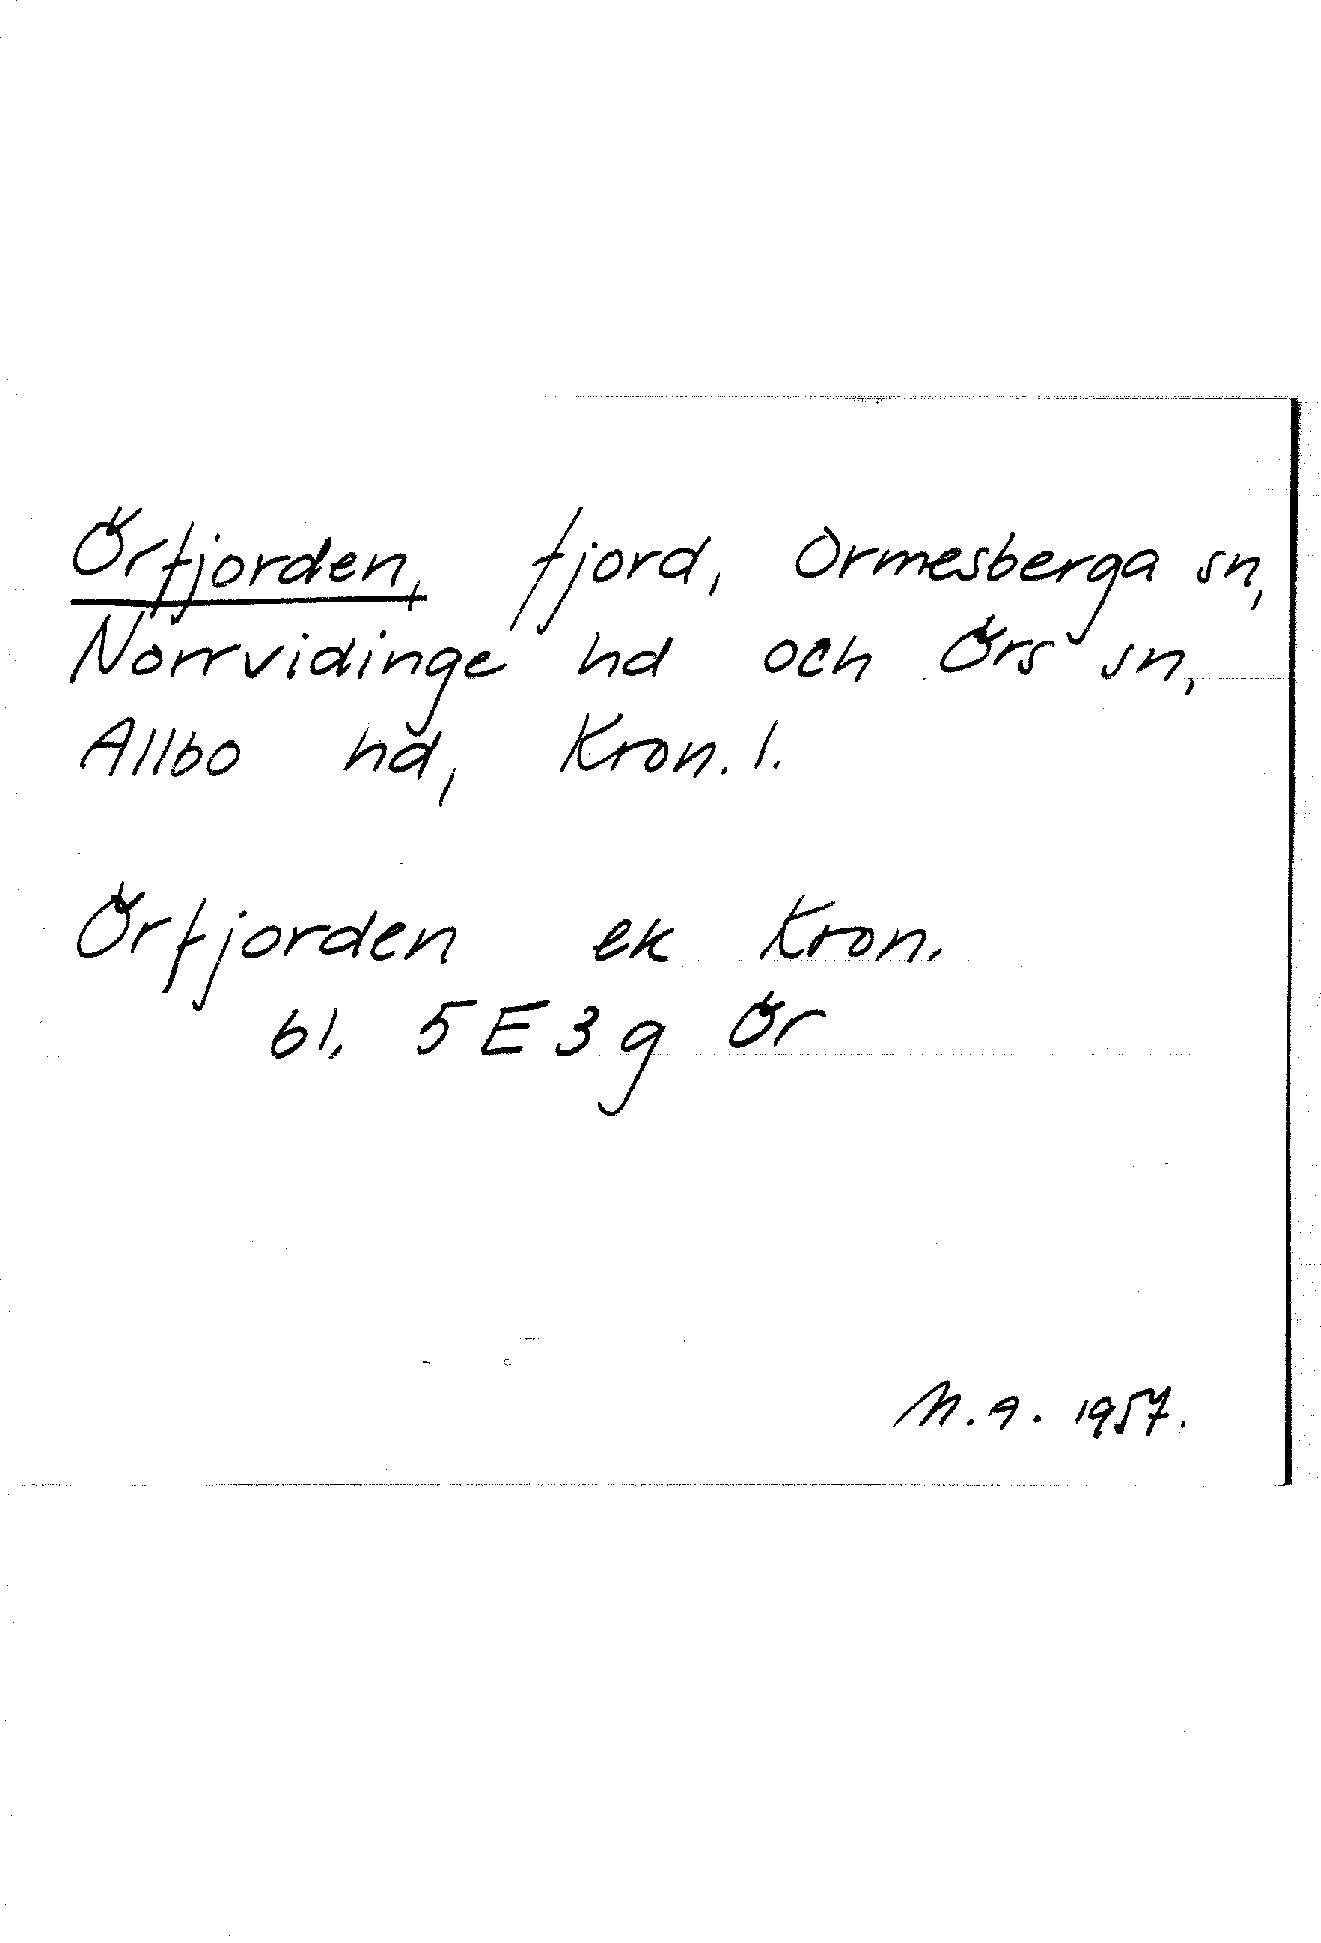 Örfjorden, fjord, Ormesberga sn,
Norrvidinge hd och Örs sn,
Allbo hd, Kron. l.
Örfjorden ek Kron.
bl. 5E3g Ör
M. A. 1957.